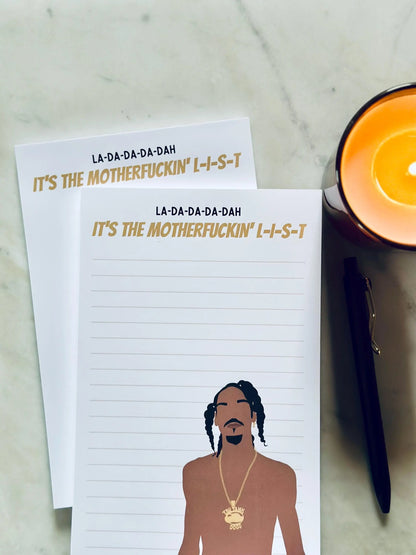 LA-DA-DA-DA-DAH
IT'S THE MOTHERFUCKIN' L-I-S-T
LA-DA-DA-DA-DAH
IT'S THE MOTHERFUCKIN' L-I-S-T